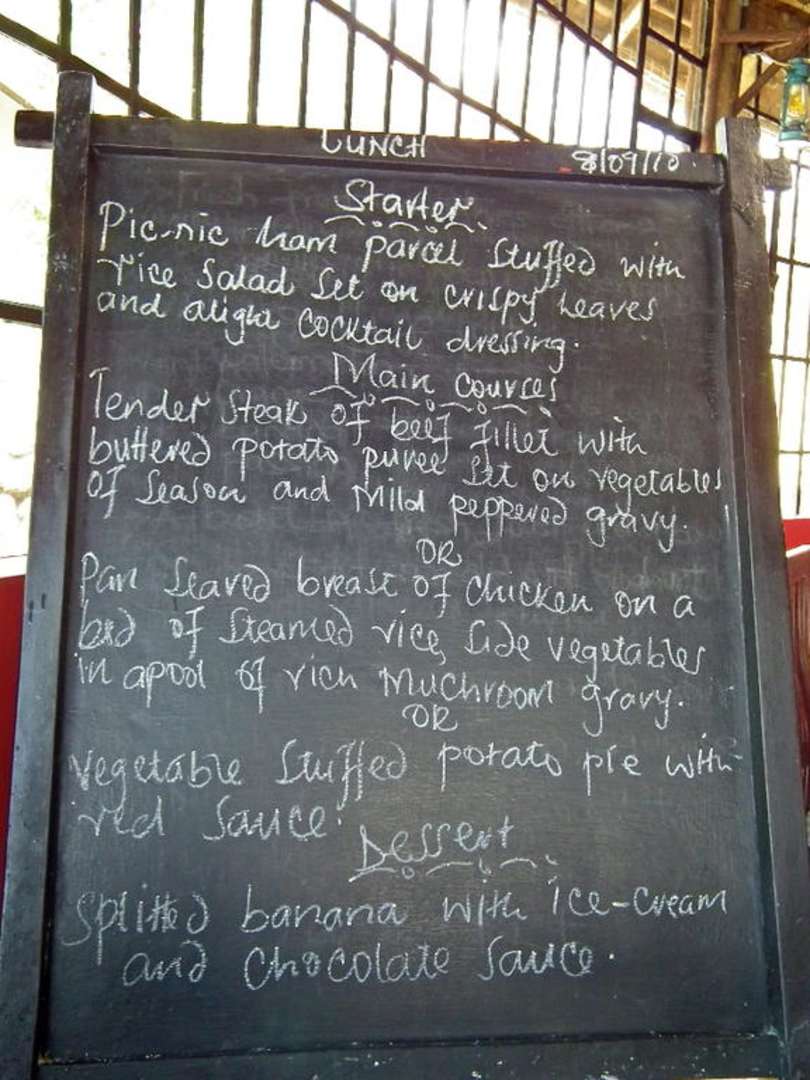 LUNCH 8/09/10
Starter
Pic-nic ham parcel stuffed with
rice salad set on crispy leaves
and alight cocktail dressing.
Main courses
Tender steak of beef fillet with
buttered potato puree set on vegetables
of season and mild peppered gravy.
OR
Pan seared breast of chicken on a
bed of steamed rice, side vegetables
in apool of rich muchroom gravy.
OR
vegetable stuffed potato pie with
red sauce.
Dessert
Splitted banana with ice-cream
and chocolate sauce.